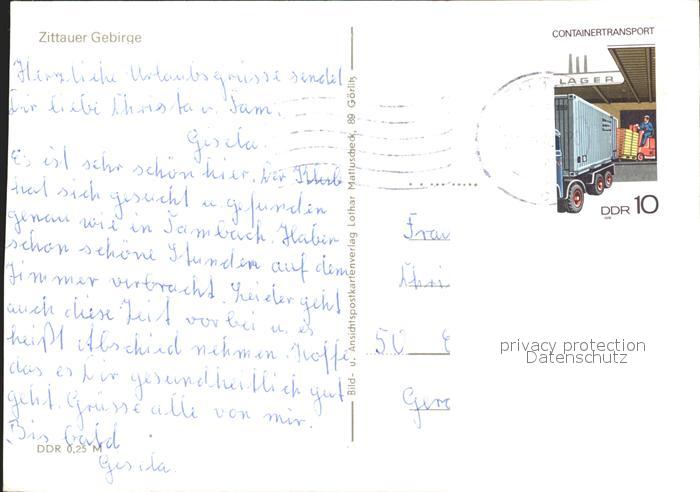 Zittauer Gebirge
Herzliche Urlaubsgrüsse sendet
Dir liebe Christa u. Fam.
Gesela.
Es ist sehr schön hier. Der Klub
hat sich gesucht u. gefunden
genau wie in Tambach. Haben
schon schöne Stunden auf dem
Zimmer verbracht. Leider geht
auch diese Zeit vorbei u. es
heißt Abschied nehmen. Hoffe
das es Dir gesundheitlich gut
geht. Grüsse alle von mir.
Bis bald
Gesela.
DDR 0,25 M
Bild- u. Ansichtspostkartenverlag Lothar Mattuscheck, 89 Görlitz
CONTAINERTRANSPORT
LAGER
DDR 10
Frau
Chri
50
Gero
privacy protection
Datenschutz